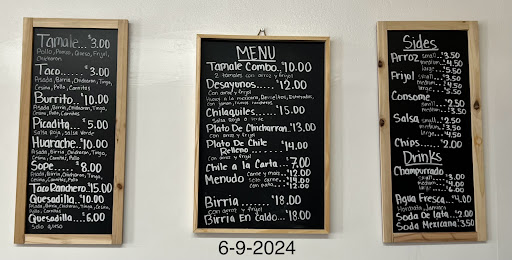 Tamale...$3.00
Pollo, Puerco, Queso, Frijol,
Chicharon
Taco.....$3.00
Asada, Birria, Chicharon, Tinga,
Cesina, Pollo, Carnitas
Burrito..$10.00
Asada, Birria, Chicharon, Tinga,
Cesina, Pollo, Carnitas
Picadita..$5.00
Salsa Roja, Salsa Verde
Huarache.$10.00
Asada, Birria, Chicharon, Tinga,
Cesina, Carnitas, Pollo
Sope.....$8.00
Asada, Birria, Chicharon, Tinga,
Cesina, Carnitas, Pollo
Taco Ranchero.$15.00
Quesadilla.$10.00
Asada, Birria, Chicharon, Tinga, Cesina,
Pollo, Carnitas
Quesadilla...$6.00
Solo queso
MENU
Tamale Combo..$10.00
2 tamales con arroz y frijol
Desayunos.....$12.00
Con arroz y frijol
Chilaquiles......15.00
Salsa Roja o Verde
Plato De Chicharron.$13.00
con arroz y frijol
Plato De Chile
Relleno......$14.00
Con arroz y frijol
Chile a la Carta..$7.00
Menudo
Carne y mais...$12.00
Solo carne...$14.00
con pata....$12.00
Birria........$18.00
con arroz y frijol
Birria En Caldo..$18.00
Sides
Arroz small...$3.50
medium...4.50
large...$5.50
Frijol small...$3.50
medium...4.50
large...$5.50
Consome
small...$2.50
medium...$3.50
Salsa small...$2.50
medium...$3.50
large...$4.50
Chips......$2.00
Drinks
Champurrado
small...$3.00
medium...4.00
large...$6.00
Agua Fresca...$4.00
Horchata, Jamaica
Soda De lata..$2.00
Soda Mexicana.$3.50
6-9-2024